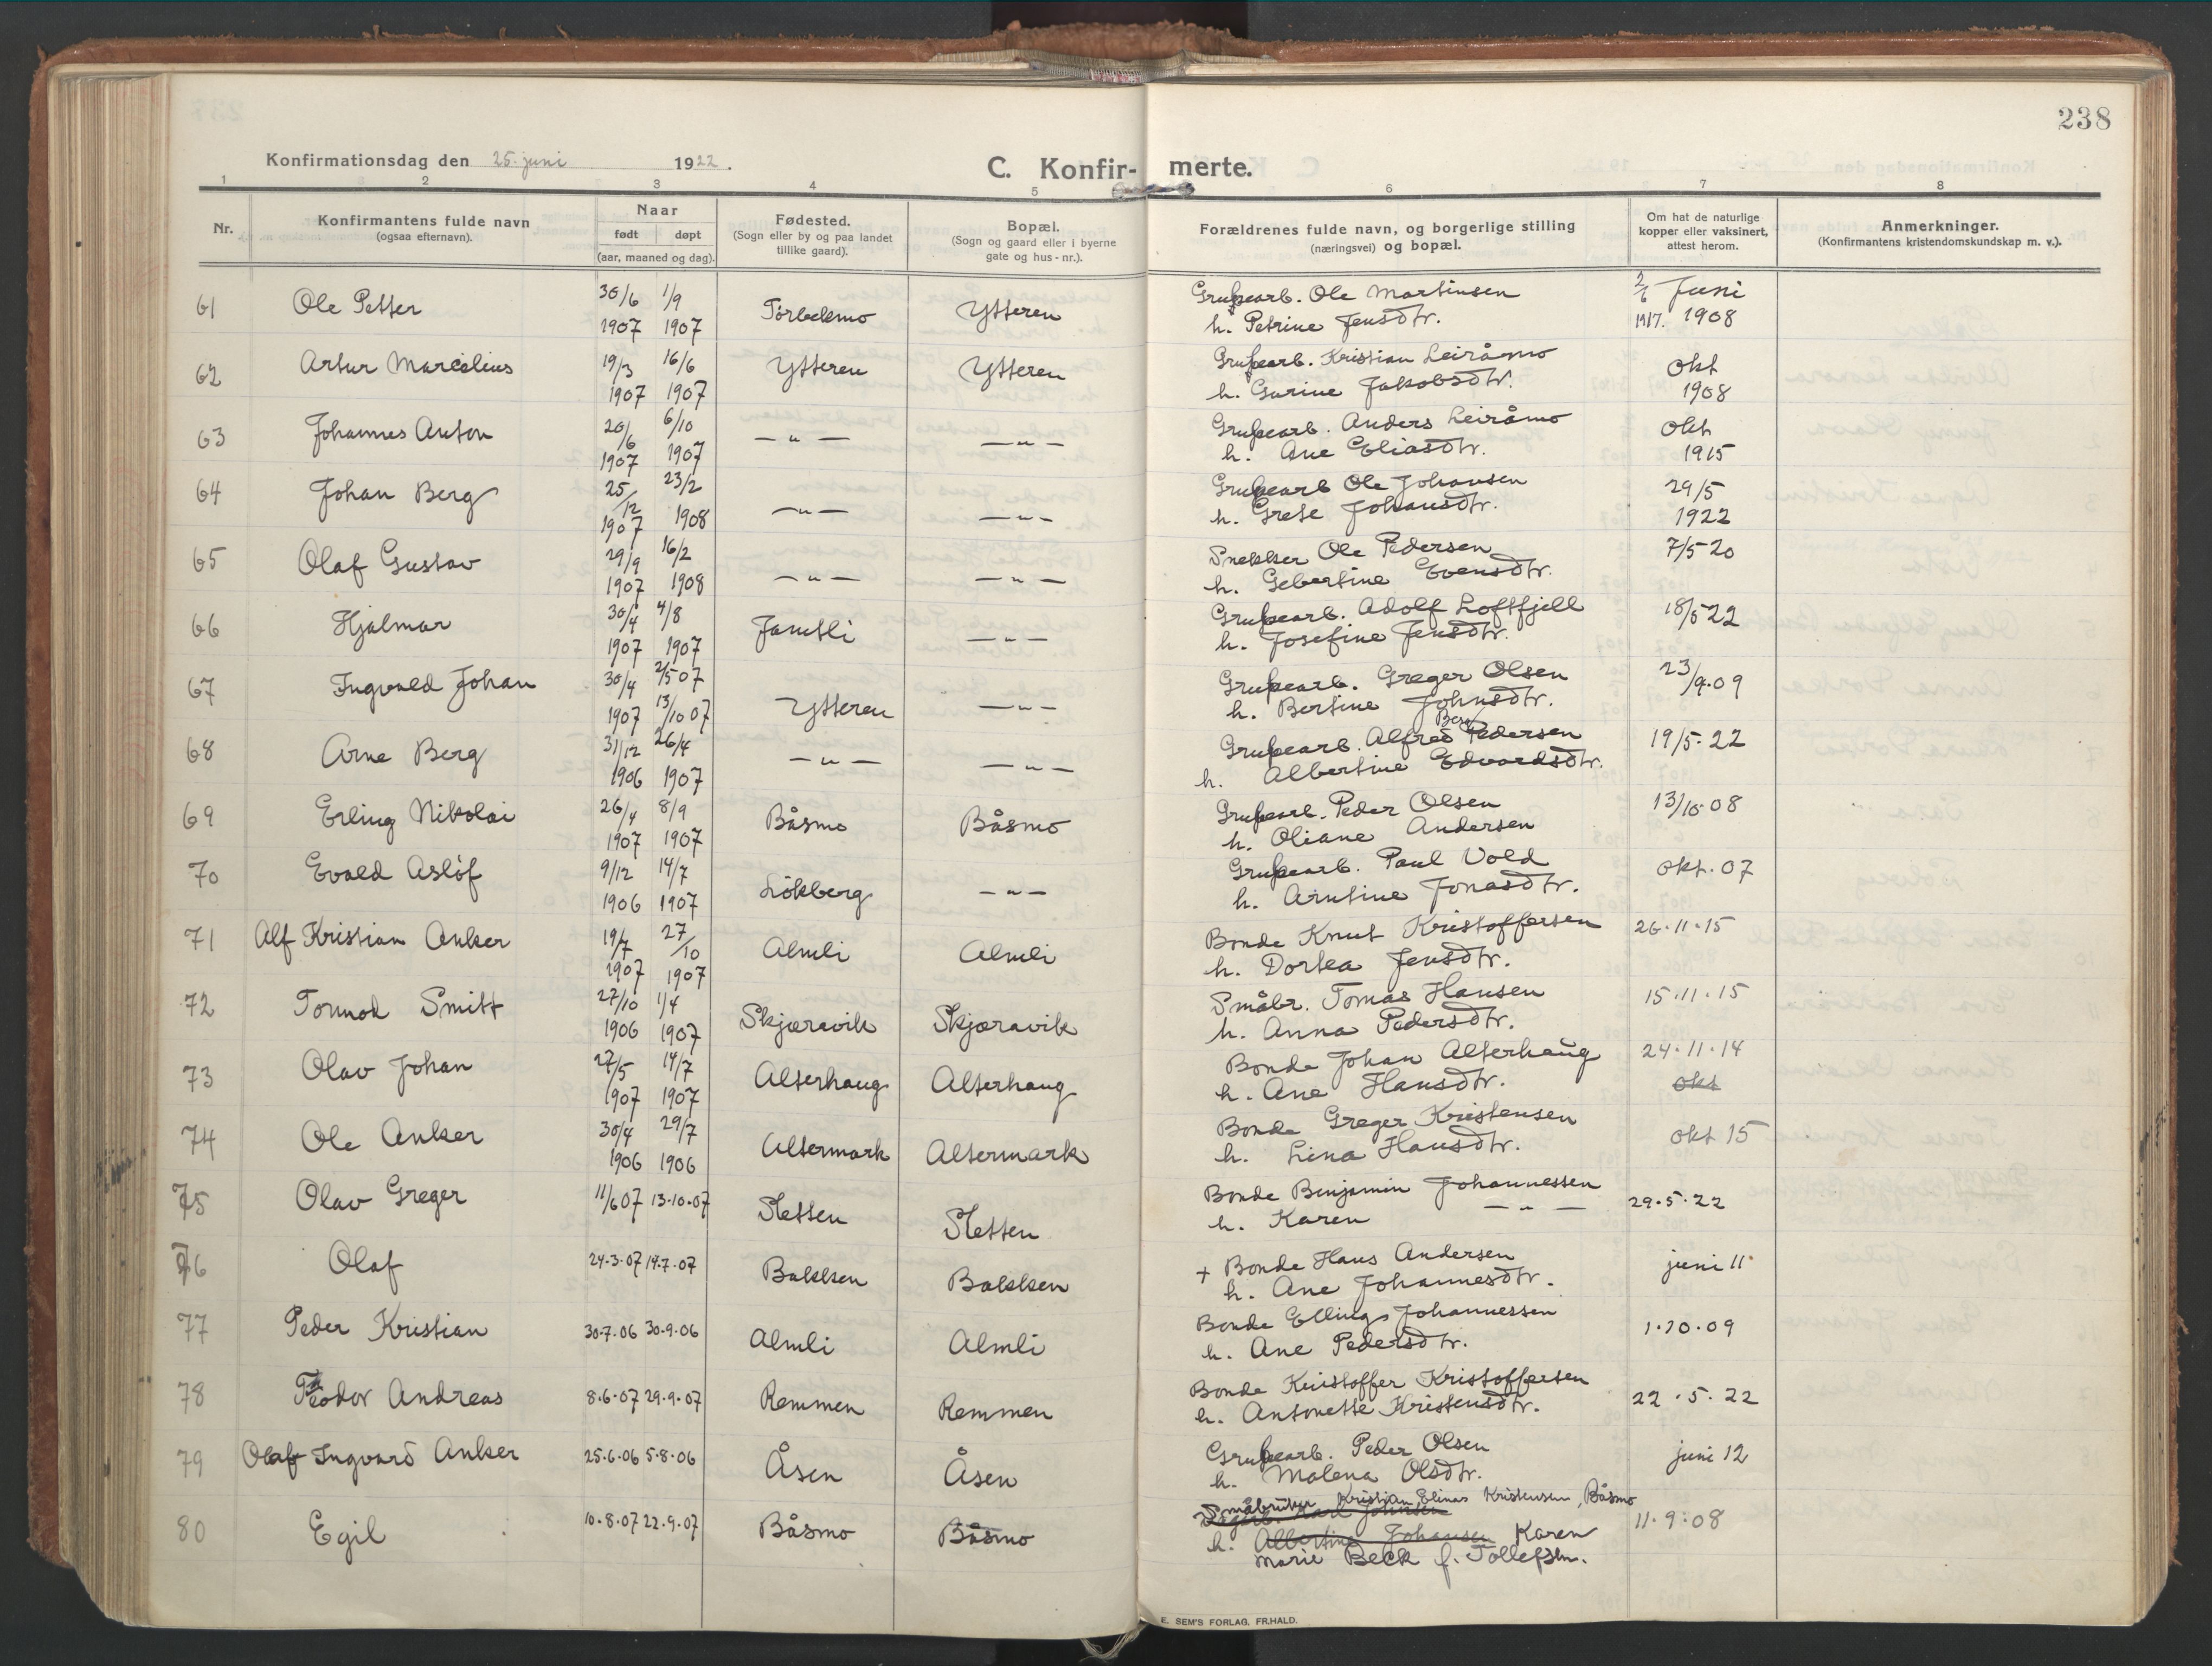 238
Konfirmationsdag den 25. juni 1922.
C. Konfir- merte.
1 2 3 4 5 6 7 8
Nr.
Konfirmantens fulde navn
(ogsaa efternavn).
Naar
født døpt
(aar, maaned og dag).
Fødested.
(Sogn eller by og paa landet
tillike gaard).
Bopæl.
(Sogn og gaard eller i byerne
gate og hus-nr.).
Forældrenes fulde navn, og borgerlige stilling
(næringsvei) og bopæl.
Om hat de naturlige
kopper eller vaksinert,
attest herom.
Anmerkninger.
(Konfirmantens kristendomskundskap m. v.).
61 Ole Petter 30/6 1/9 Ytteren Grubearb. Ole Martinsen 2/6 Juni
1907 1907 h. Petrine Jensdtr. 1917. 1908
62 Artur Marcelius 19/3 16/6 Ytteren Ytteren Grubearb. Kristian Leiråmo okt
1907 1907 h. Gurine Jakobsdtr. 1908
63 Johannes Anton 20/6 6/10 — " — — " — Grubearb. Anders Leiråmo Okt
1907 1907 h. Ane Eliasdtr. 1915
64 Johan Berg 25/12 23/2 — " — — " — Grubearb Ole Johansen 29/5
1907 1908 h. Grete Johansdtr. 1922
65 Olaf Gustav 29/9 16/2 — " — — " — Snekker Ole Pedersen 7/5 20
1907 1908 h. Gebertine Evensdtr.
66 Hjalmar 30/4 4/8 Jamtli — " — Grubearb. Adolf Loftfjell 18/5 22
1907 1907 h. Josefine Jensdtr.
67 Ingvald Johan 30/4 2/5 07 Ytteren — " — Grubearb. Greger Olsen 23/9.09
1907 13/10 07 h. Bertine Johnsdtr.
68 Arne Berg 31/12 26/4 — " — — " — Grubearb. Alfred Berg Pedersen 19/5.22
1906 1907 h. Albertine Edvardsdtr.
69 Erling Nikolai 26/4 8/9 Båsmo Båsmo Grubearb. Peder Olsen 13/10.08
1907 1907 h. Oliane Andersen
70 Evald Asløf 9/12 14/7 Løkberg — " — Grubearb. Paul Vold okt. 07
1906 1907 h. Arntine Jonasdtr.
71 Alf Kristian Anker 19/7 27/10 Almli Almli Bonde Knut Kristoffersen 26.11.15
1907 1907 h. Dortea Jensdtr.
72 Tormod Smitt 27/10 1/4 Skjæravik Skjæravik Småbr. Tomas Hansen 15.11.15
1906 1907 h. Anna Pedersdtr.
73 Olav Johan 27/5 14/7 Alterhaug Alterhaug Bonde Johan Alterhaug 24.11.14
1907 1907 h. Ane Hansdtr. okt
74 Ole Anker 30/4 29/7 Altermark Altermark Bonde Greger Kristensen okt 15
1906 1906 h. Lina Hansdtr.
75 Olav Greger 11/6 07 13.10.07 Sletten Sletten Bonde Benjamin Johannessen 29.5.22
h. Karen — " —
76 Olaf 24.3.07 14.7.07 Bakken Bakken + Bonde Hans Andersen juni 11
h. Ane Johannesdtr.
77 Peder Kristian 30.7.06 30.9.06 Almli Almli Bonde Elling Johannessen 1.10.09
h. Ane Pedersdtr.
78 Teodor Andreas 8.6.07 29.9.07 Remmen Remmen Bonde Kristoffer Kristoffersen 22.5.22
h. Antonette Kristensdtr.
79 Olaf Ingvard Anker 25.6.06 5.8.06 Åsen Åsen Grubearb. Peder Olsen juni 12
h. Malena Olsdtr.
80 Egil 10.8.07 22.9.07 Båsmo Båsmo Småbruker Kristian Elinas Kristensen, Båsmo 11.9.08
Karl Johnsen
h. Albertine Johansen Karen
Marie Beck f. Tollefsen.
E. SEM'S FORLAG. FR.HALD.